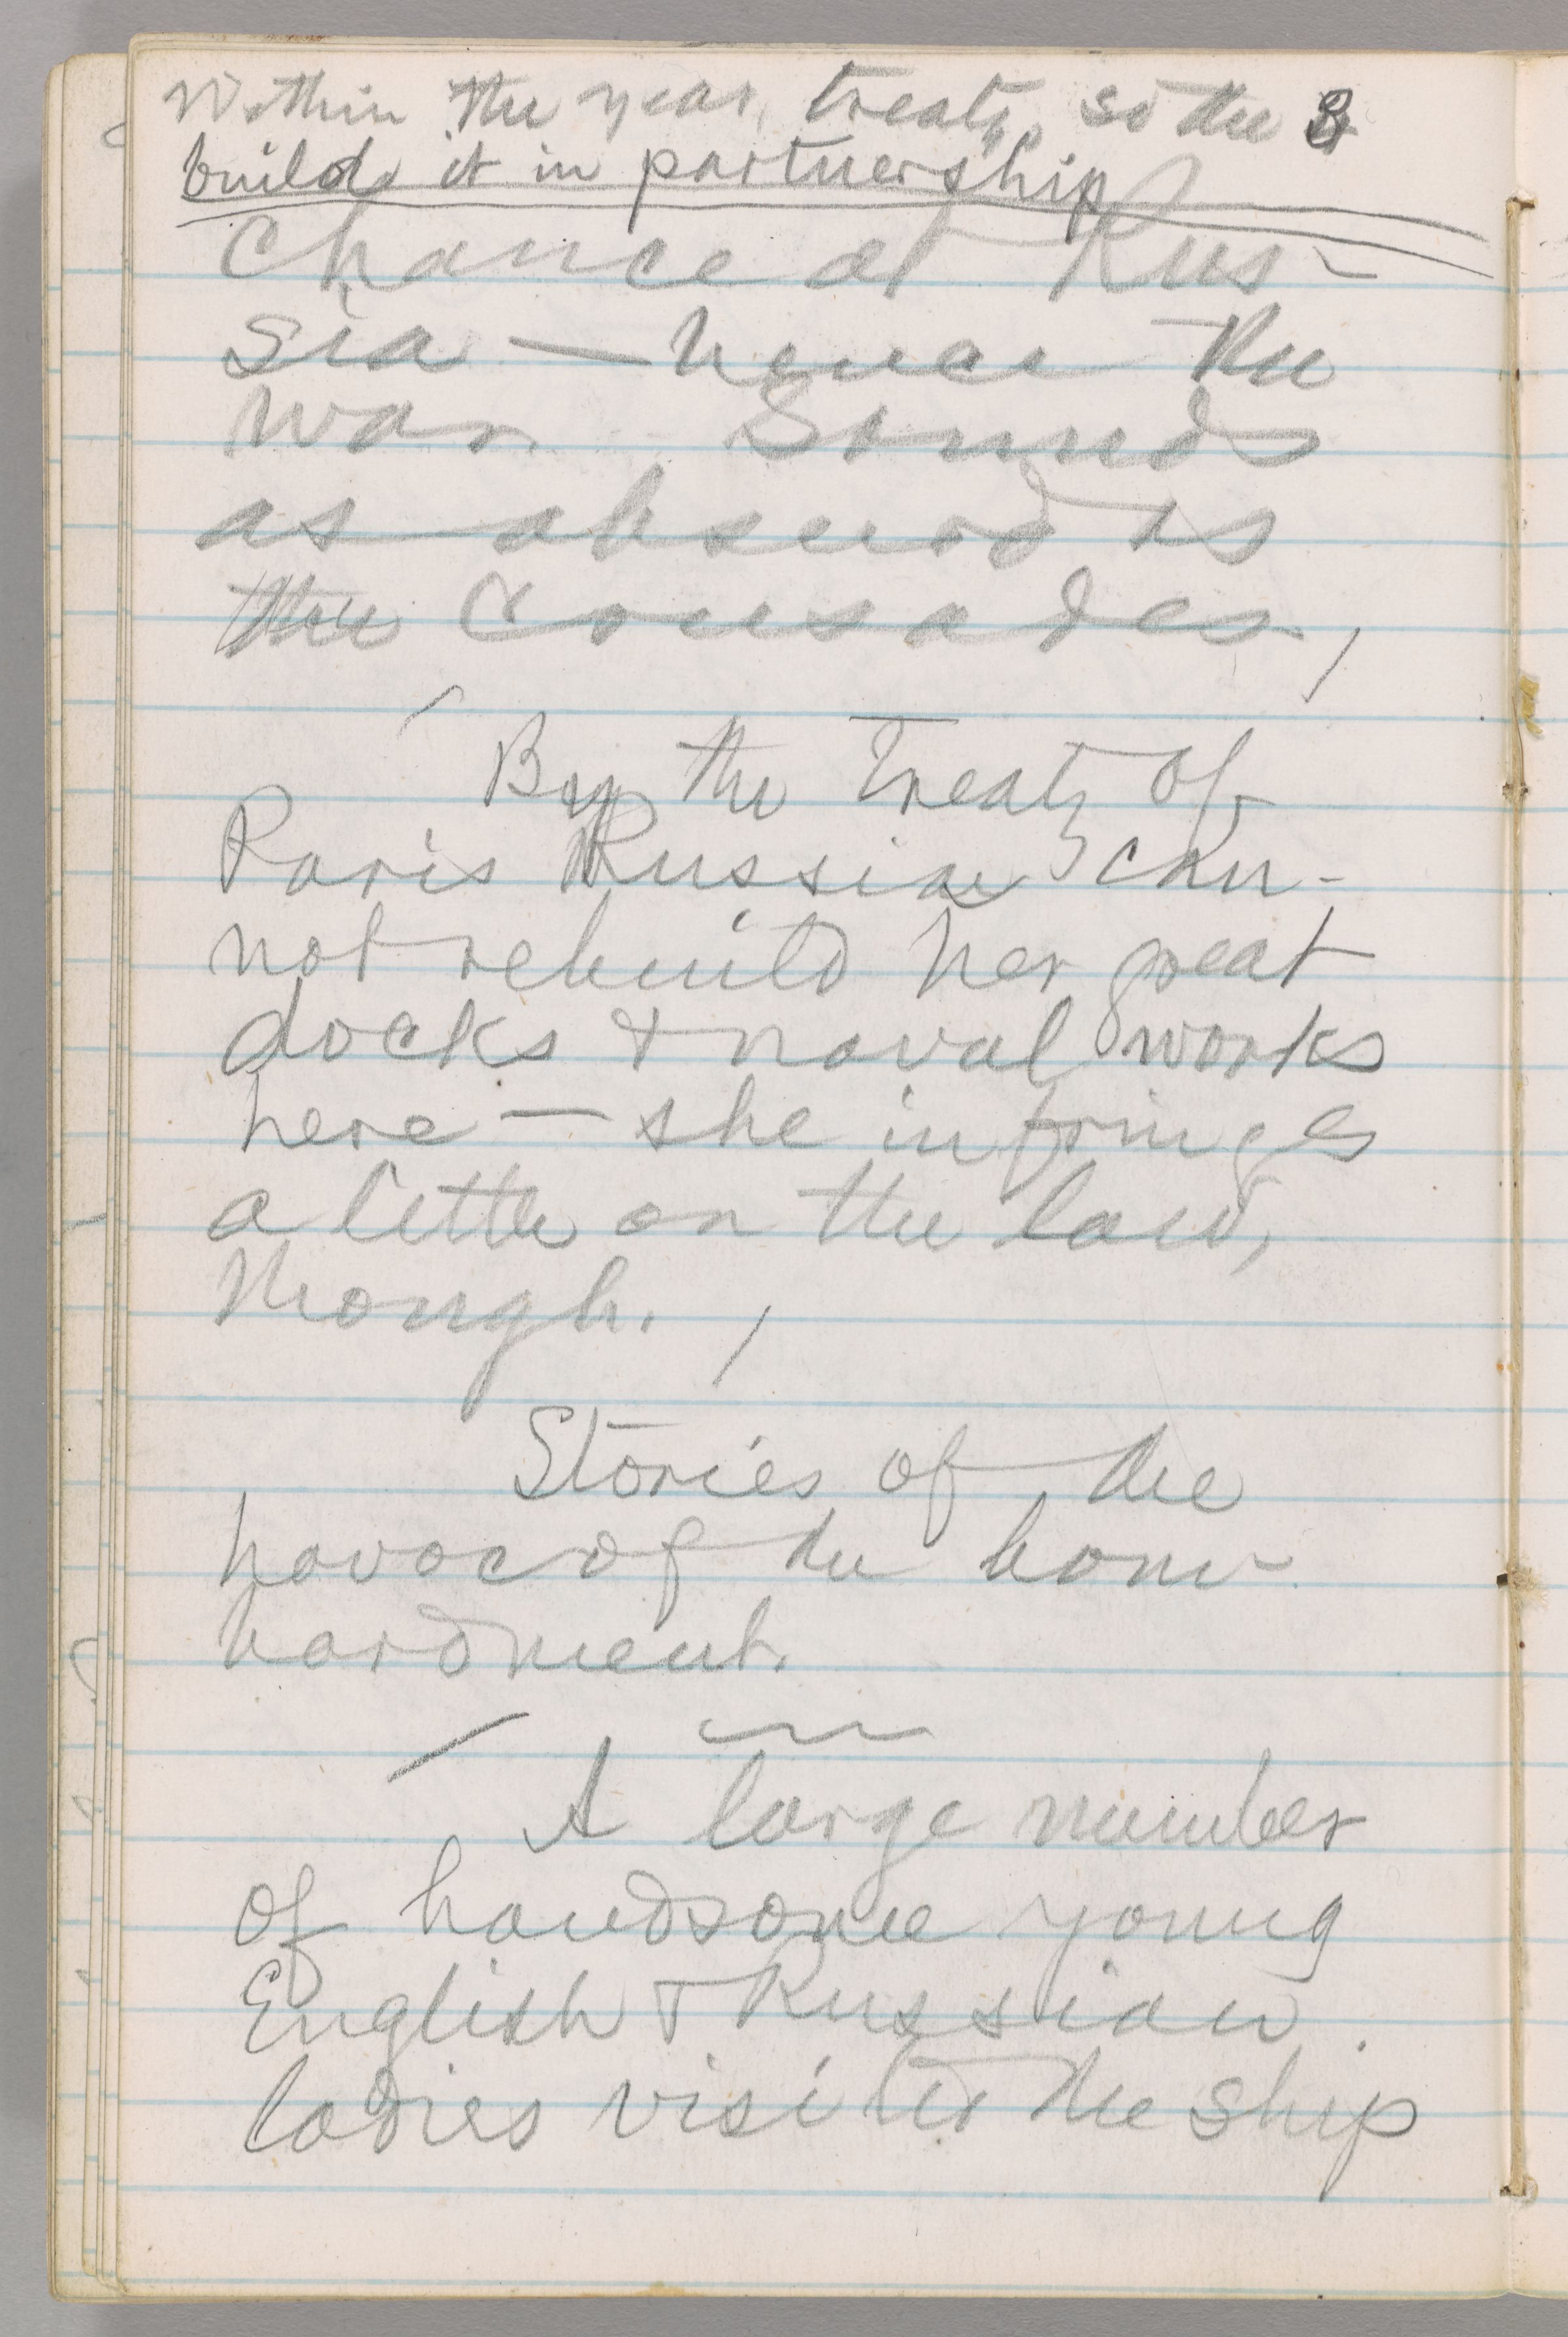 Within the year, treaty, so the 3
build it in partnership
chance at Rus-
sia — hence the
war. Sounds
as absurd as
the Crusades,
By the Treaty of
Paris Russia can-
not rebuild her great
docks & naval works
here — she infringes
a little on the law,
though.
Stories of the
havoc of the bom-
bardment.
A large number
of handsome young
English & Russian
ladies visited the ship